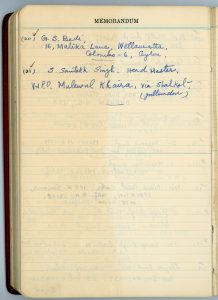 MEMORANDUM
(20) G. S. Bedi,
16, Malika Lane, Wellawatta,
Colombo-6, Ceylon
(21) S. Singh, Head Master,
V&P.O. Mulewal Khaira, via Shahkot,
(Jullundur)